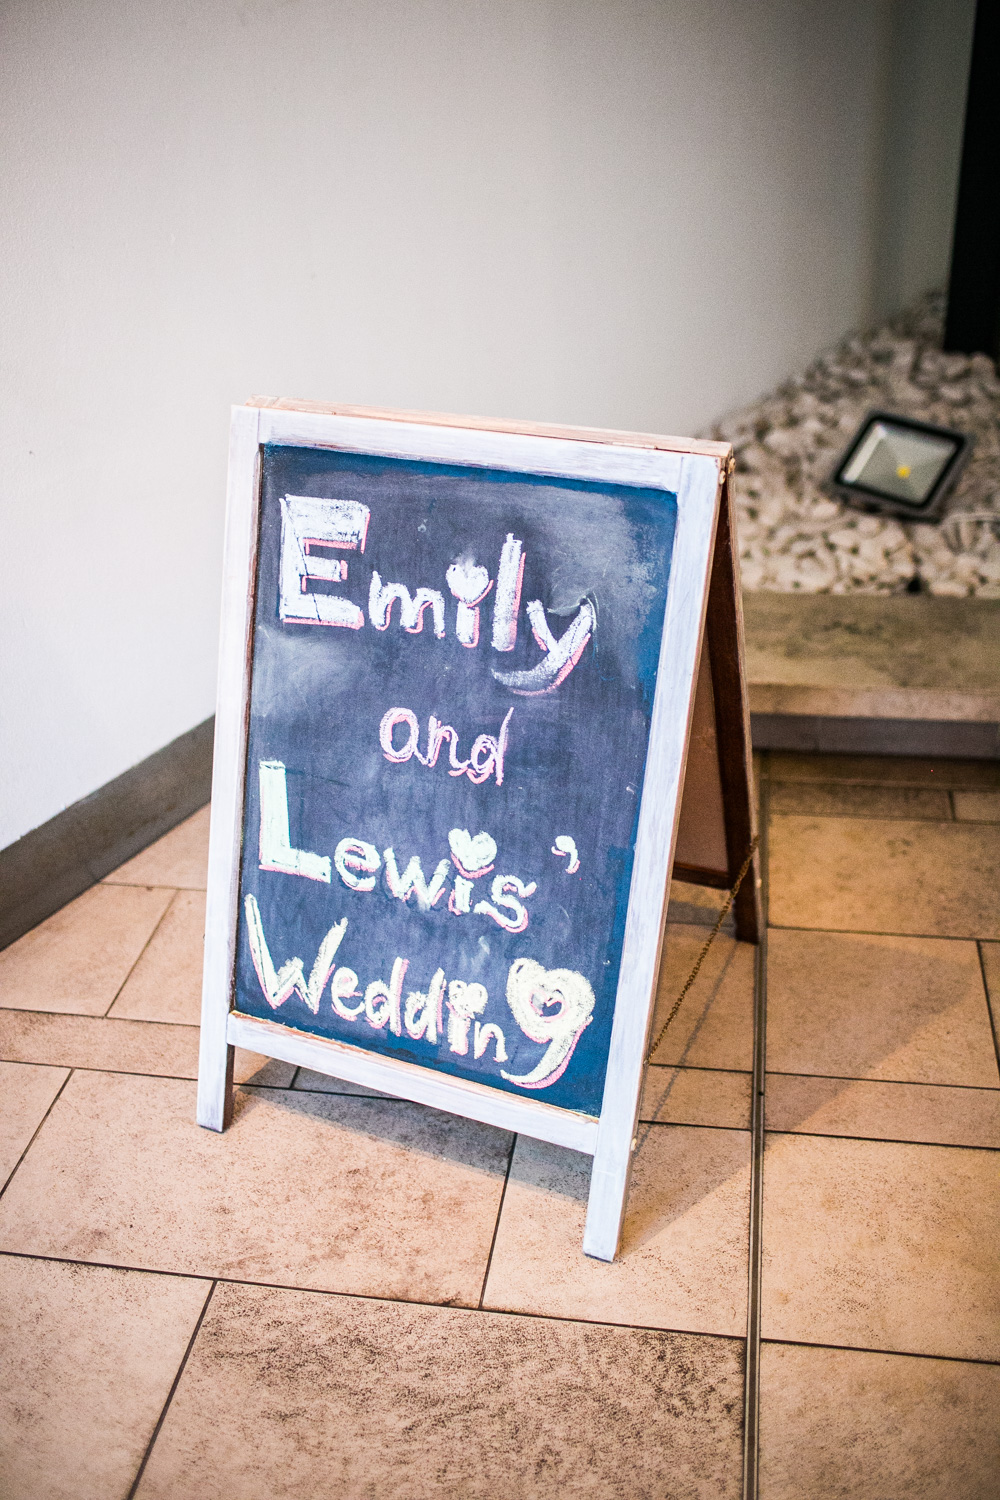 Emily
and
Lewis'
Wedding